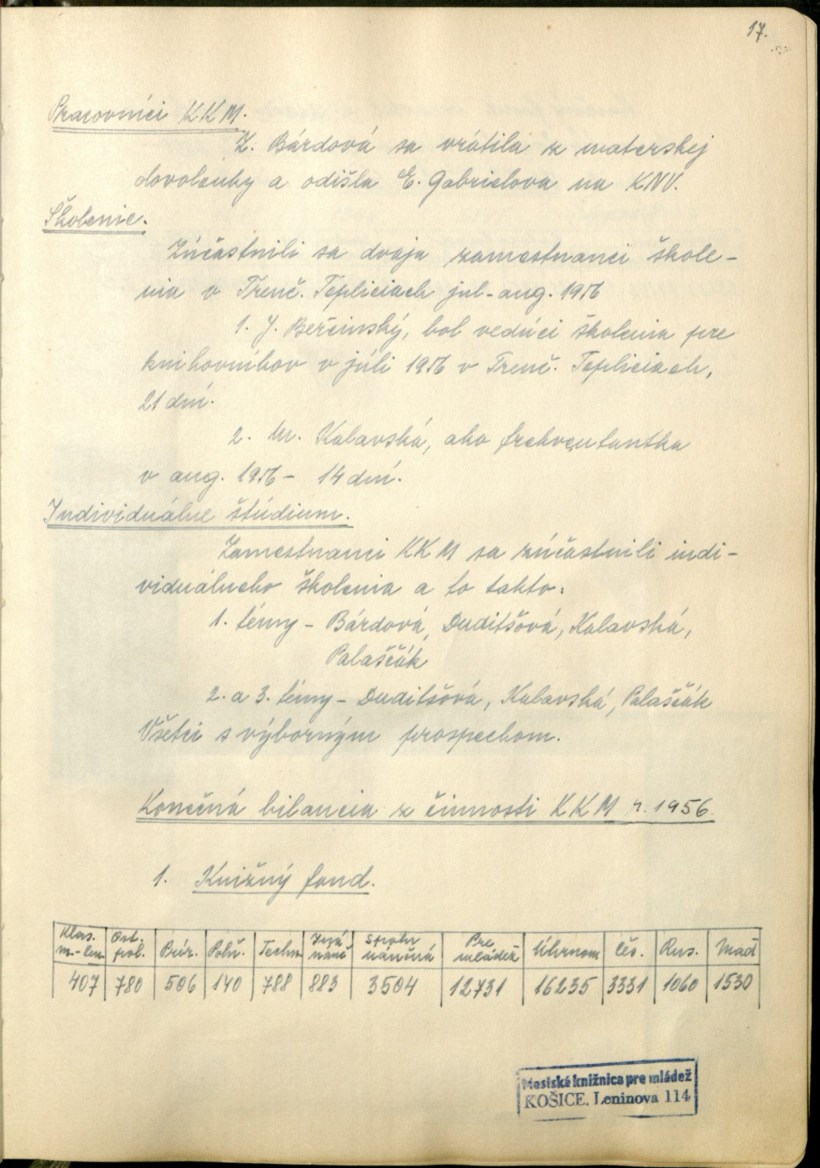 17.
Pracovníci KKM.
Z. Bárdová sa vrátila z materskej
dovolenky a odišla E. Gabrielova na KNV.
Školenie.
Zúčastnili sa dvaja zamestnanci škole-
nia v Trenč. Tepliciach jul-aug. 1956
1. J. Berčinský, bol vedúci školenia pre
knihovníkov v júli 1956 v Trenč. Tepliciach,
21 dní.
2. M. Kalavská, ako frekventantka
v aug. 1956 - 14 dní.
Individuálne štúdium.
Zamestnanci KKM sa zúčastnili indi-
viduálneho školenia a to takto:
1. témy - Bárdová, Duditšová, Kalavská,
Palaščák
2. a 3. témy - Duditšová, Kalavská, Palaščák
Všetci s výborným prospechom.
Konečná bilancia z činnosti KKM r. 1956.
1. Knižný fond.
Klas. m.-len. Ost. pol. Prír. Poľn. Techn. Jazá náuč Stroku náučná Pre mládež Úhrnom Čes. Rus. Maď
407 780 506 140 788 883 3504 12731 16235 3331 1060 1530
Mestská knižnica pre mládež
KOŠICE, Leninova 114